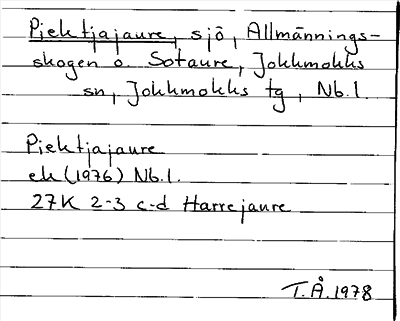 Piektjajaure, sjö, Allmännings-
skogen o. Sotaure, Jokkmokks
sn, Jokkmokks tg, Nb.l.
Piektjajaure
ek (1976) Nb.l.
27K 2-3 c-d Harrejaure
T.Å. 1978